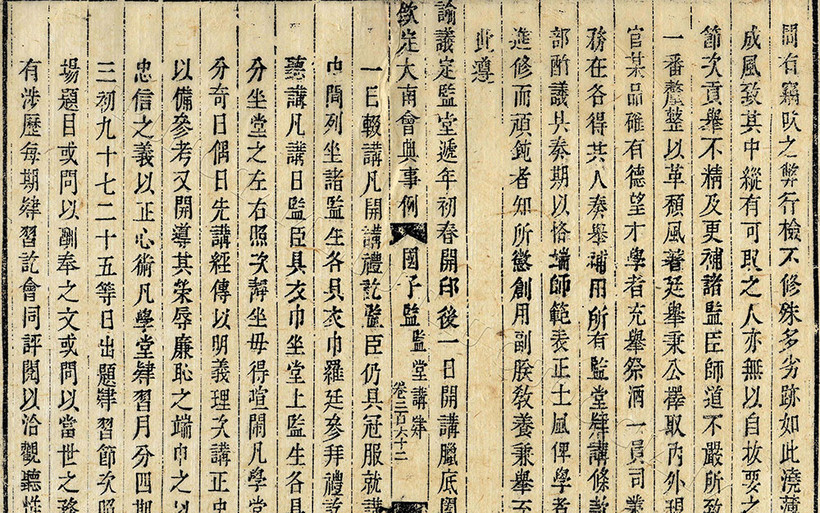 間有竊吹之弊行檢不修殊多劣跡如此澆薄
成風致其中縱有可取之人亦無以自拔要之
節次貢舉不精及更補諸監臣師道不嚴所致
一番釐整以革頹風著廷舉秉公擇取內外現
官某品確有德望才學者充舉祭酒一員司業
務在各得其人奏舉補用所有監堂肄講條款
部酌議具奏期以恪端師範表正士風俾學者
進修而頑鈍者知所懲創用副朕教養兼舉至
此遵
諭議定監堂遞年初春開印後一日開講臘底
欽定大南會典事例 國子監 監堂講肄 卷二百六十二
一日輟講凡開講禮訖監臣仍具冠服就講
中間列坐諸監生各具衣巾羅廷參拜禮訖
聽講凡講日監臣具衣巾坐堂上監生各具
分坐堂之左右照次靜坐毋得喧鬧凡學堂
分奇日偶日先講經傳以明義理次講正史
以備參考又開導其榮辱廉恥之端巾之以
忠信之義以正心術凡學堂肄習月分四期
三初九十七二十五等日出題肄習節次照
場題目或問以酬奉之文或問以當世之務
有涉歷每期肄習訖會同評閱以洽觀聽